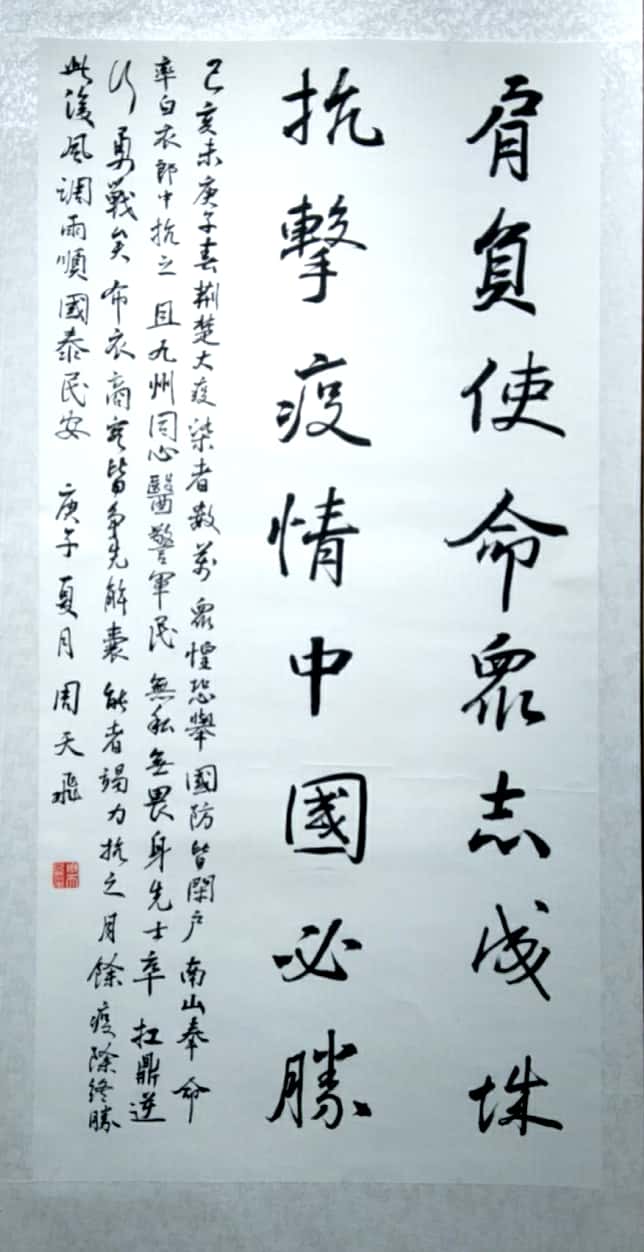 肩負使命眾志成城
抗擊疫情中國必勝
己亥末庚子春荆楚大疫染者数萬眾惶恐舉國防皆閉戶南山奉命
率白衣郎中抗之且九州同心醫警軍民無私無畏身先士卒扛鼎逆
行勇戰矣布衣商客皆争先解囊能者竭力抗之月餘疫除終勝
此後風調雨順國泰民安庚子夏月周天飛